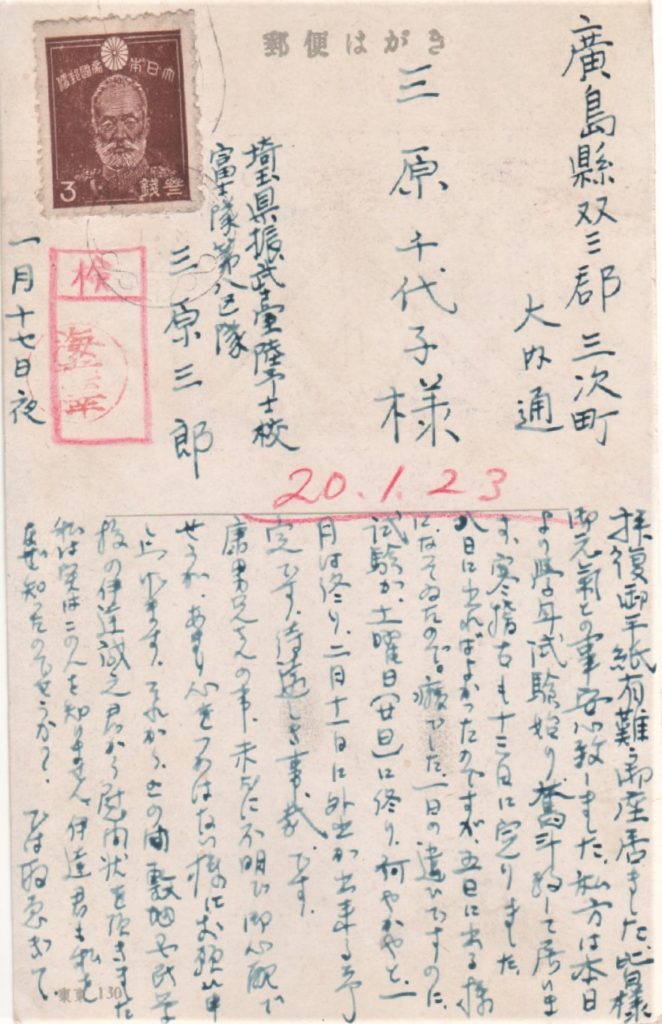 郵便はがき
大日本帝國郵便
3
参銭
廣島縣双三郡三次町
大内通
三原千代子様
埼玉県振武臺陸予士校
富士隊第八区隊
三原三郎
一月十七日夜
候
20.1.23
拝復御手紙有難う御座居ました、皆様
御元氣との事安心致しました、私方は本日
より學年試験始り奮斗致して居りま
す、寒稽古も十三日に完りました
八日に出ればよかったのですが、五日に出る様
になってゐたので癪でした、一日の違ひですのに、
試験が、土曜日(廿日)に終り、何やかやと、一
月は終り、二月十一日に外出が出来る予
定です、待遠しき事哉、です。
康男兄さんの事、未だに不明で御心配で
せうが、あまり心をつかはない様にお願ひ申
し上げます、それから、この間敷地国民学
校の伊達誠之君から慰問状を頂きました
私は実はこの人を知りません、伊達君も私を
知ったのでせうか?、ではお元気で
東京 130